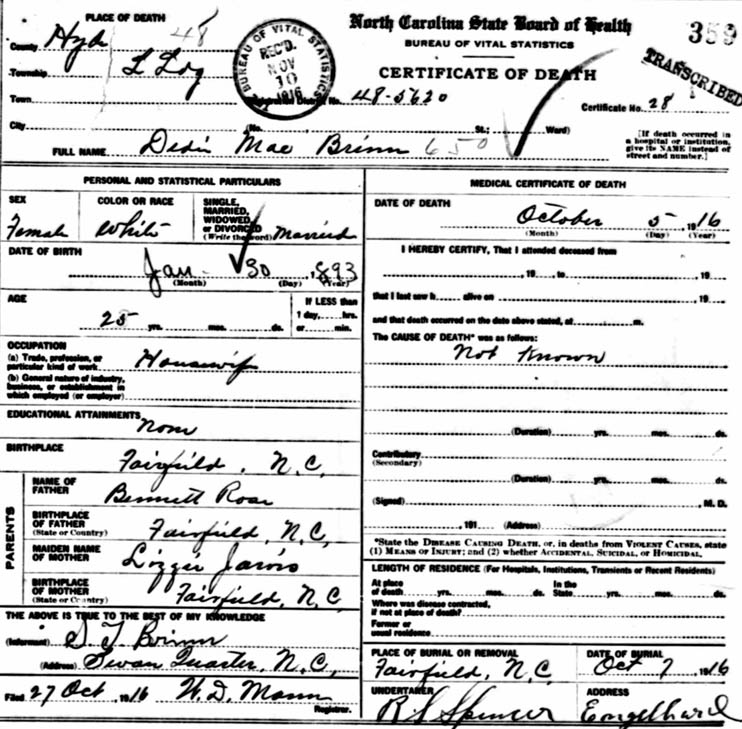 PLACE OF DEATH
North Carolina State Board of Health
359
County Hyde 48
BUREAU OF VITAL STATISTICS
BUREAU OF VITAL STATISTICS
REC'D.
NOV
10
1916
TRANSCRIBED
Township
CERTIFICATE OF DEATH
Town
Registration District No. 48-5620
Certificate No. 28
City
(No. St.; Ward)
[If death occurred in
a hospital or institution,
give its NAME instead of
street and number.]
FULL NAME Mae Brinn 650
PERSONAL AND STATISTICAL PARTICULARS
SEX
Female
COLOR OR RACE
White
SINGLE,
MARRIED,
WIDOWED,
or DIVORCED
(Write the word) Married
DATE OF BIRTH
Jan 30 1893
(Month) (Day) (Year)
AGE
25 yrs. mos. ds.
If LESS than
1 day, hrs.
or min.
OCCUPATION
(a) Trade, profession, or
particular kind of work Housewife
(b) General nature of industry,
business, or establishment in
which employed (or employer)
EDUCATIONAL ATTAINMENTS
None
BIRTHPLACE
Fairfield, N.C.
PARENTS
NAME OF
FATHER
Bennett
BIRTHPLACE
OF FATHER
(State or Country) Fairfield, N.C.
MAIDEN NAME
OF MOTHER
Lizzie Jarvis
BIRTHPLACE
OF MOTHER
(State or Country) Fairfield, N.C.
THE ABOVE IS TRUE TO THE BEST OF MY KNOWLEDGE
(Informant) Brinn
(Address) Swan Quarter, N.C.
Filed 27 Oct, 1916 W. D. Mann
Registrar.
MEDICAL CERTIFICATE OF DEATH
DATE OF DEATH
October 5, 1916
(Month) (Day) (Year)
I HEREBY CERTIFY, That I attended deceased from
, 19 , to , 19
that I last saw h alive on , 19
and that death occurred on the date above stated, at m.
The CAUSE OF DEATH* was as follows:
Not Known
(Duration) yrs. mos. ds.
Contributory
(Secondary)
(Duration) yrs. mos. ds.
(Signed) , M. D.
, 191 (Address)
*State the DISEASE CAUSING DEATH, or, in deaths from VIOLENT CAUSES, state
(1) MEANS OF INJURY; and (2) whether ACCIDENTAL, SUICIDAL, or HOMICIDAL.
LENGTH OF RESIDENCE (For Hospitals, Institutions, Transients or Recent Residents)
At place
of death yrs. mos. ds.
In the
State yrs. mos. ds.
Where was disease contracted,
if not at place of death?
Former or
usual residence
PLACE OF BURIAL OR REMOVAL
Fairfield, N.C.
DATE OF BURIAL
Oct 7, 1916
UNDERTAKER
R S Spencer
ADDRESS
Engelhard